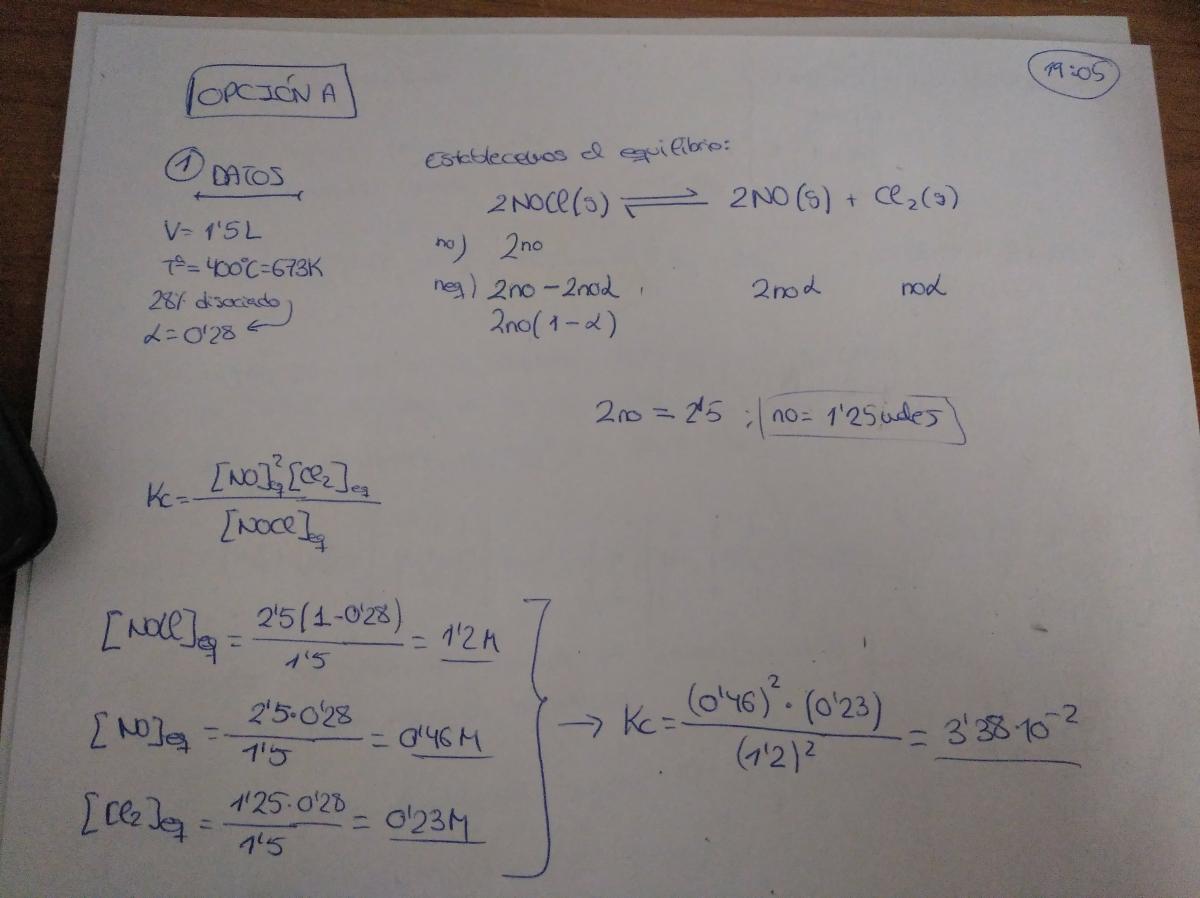 OPCIÓN A
19:05
① DATOS
V= 1'5L
Tª= 400ºC=673K
28% disociado
α=0'28
Establecemos el equilibrio:
2NOCl(g) ⇌ 2NO(g) + Cl₂(g)
no) 2no
neq) 2no-2noα 2noα noα
2no(1-α)
2no = 2'5 ; no= 1'25 moles
Kc= [NO]²eq [Cl₂]eq / [NOCl]eq
[NOCl]eq = 2'5(1-0'28) / 1'5 = 1'2M
[NO]eq = 2'5·0'28 / 1'5 = 0'46M
[Cl₂]eq = 1'25·0'28 / 1'5 = 0'23M
→ Kc= (0'46)²·(0'23) / (1'2)² = 3'38·10⁻²